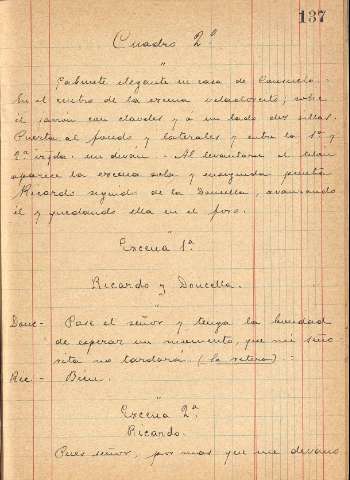 137
Cuadro 2º
Gabinete elegante en casa de Consuelo.-
En el centro de la escena veladorcito, sobre
él jarron con claveles y a un lado dos sillas.
Puerta al fondo y laterales y entre la 1ª y
2ª izqda. un diván. - Al levantarse el telon
aparece la escena sola y enseguida
Ricardo seguido de la Doncella, avanzando
él y quedando ella en el foro.
Escena 1ª
Ricardo y Doncella.
Donc- Pase el señor y tenga la bondad
de esperar un momento, que mi seño-
rita no tardará. (Se retira).-
Ric- Bien.
Escena 2ª
Ricardo.
Pues señor, por mas que me devano